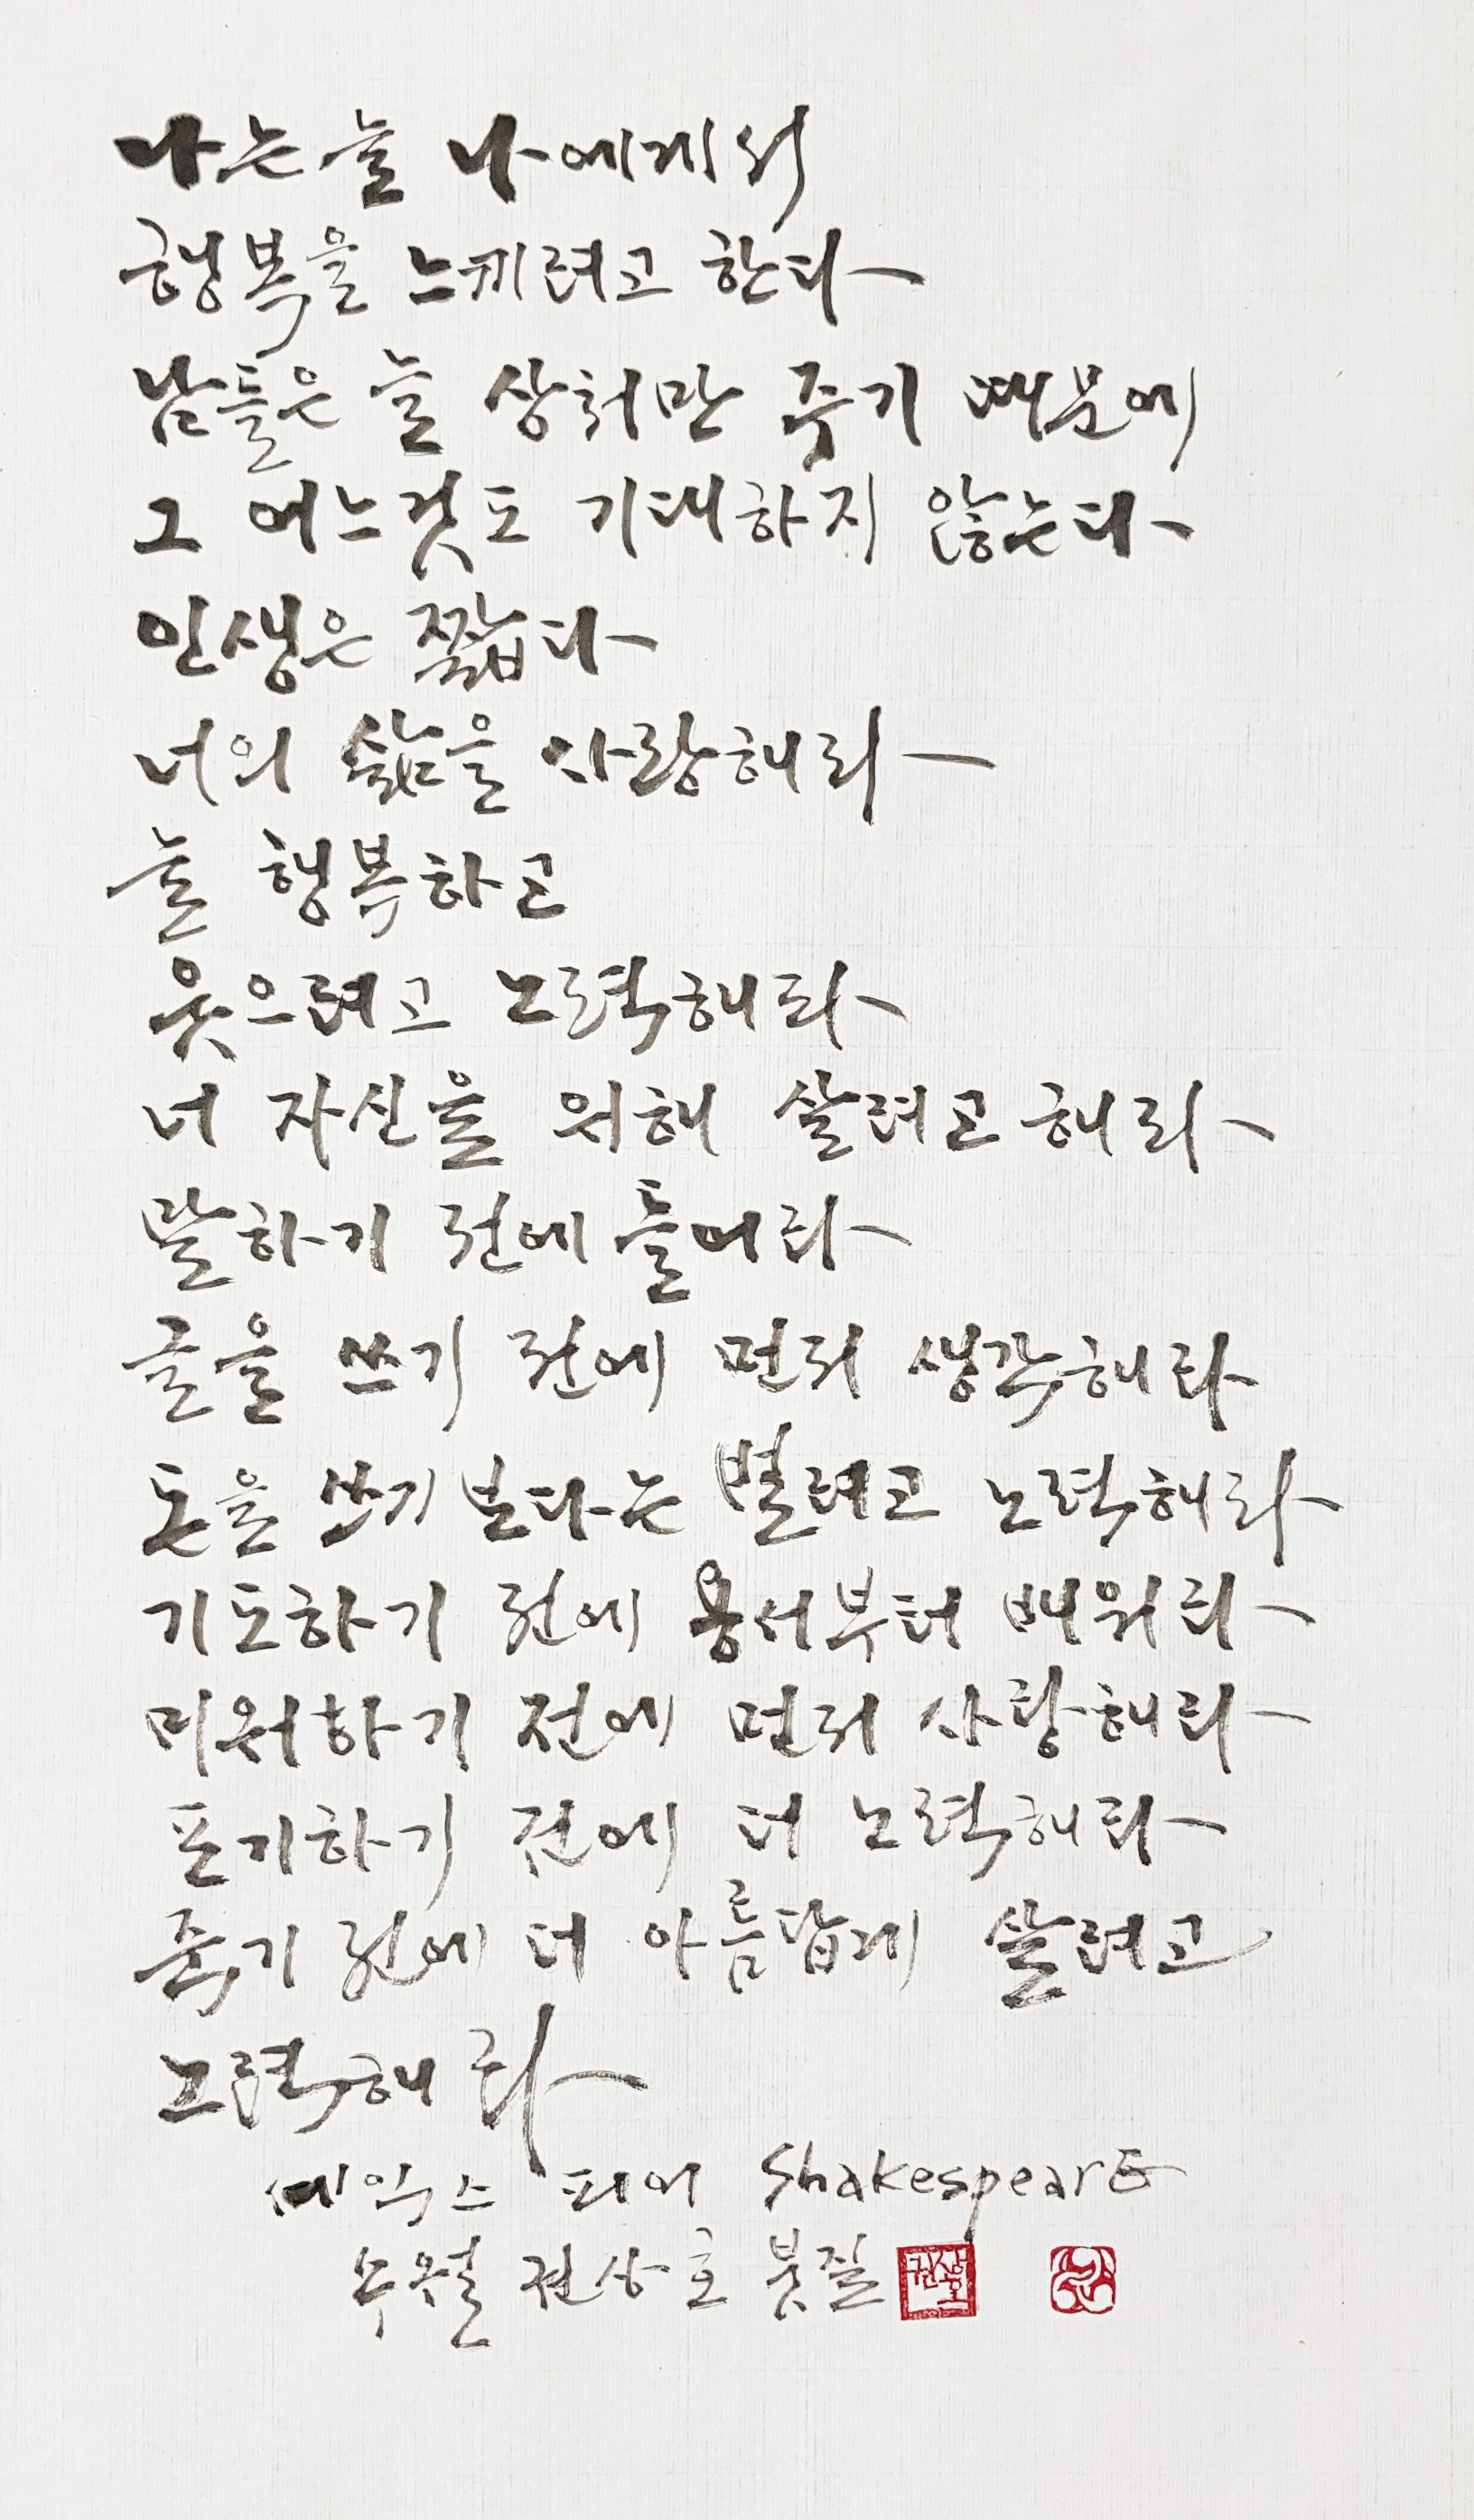 나는 늘 나에게서
행복을 느끼려고 한다
남들은 늘 상처만 주기 때문에
그 어느것도 기대하지 않는다
인생은 짧다
너의 삶을 사랑해라
늘 행복하고
웃으려고 노력해라
너 자신을 위해 살려고 해라
말하기 전에 들어라
글을 쓰기 전에 먼저 생각해라
돈을 쓰기 보다는 벌려고 노력해라
기도하기 전에 용서부터 배워라
미워하기 전에 먼저 사랑해라
포기하기 전에 더 노력해라
죽기 전에 더 아름답게 살려고
노력해라
쎄익스피어 Shakespeare
수월 권상호 붓질 권상호